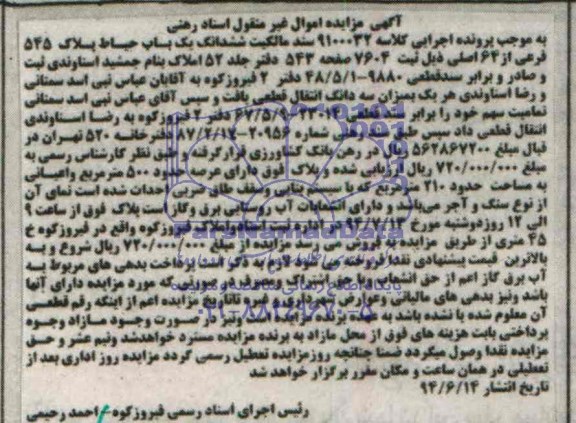 آگهی مزایده اموال غیر منقول اسناد رهنی
به موجب پرونده اجرایی کلاسه ۹۱۰۰۰۳۲ سند مالکیت ششدانگ یک باب حیاط پلاک ۵۴۵
فرعی از ۶۴ اصلی ذیل ثبت ۷۶۰۴ صفحه ۵۴۳ دفتر جلد ۵۲ املاک بنام جمشید استاوندی ثبت
و صادر و برابر سندقطعی ۹۸۸۰-۴۸/۵/۱ دفتر ۲ فیروزکوه به آقایان عباس نبی اسد سمنانی
و رضا استاوندی هر یک بمیزان سه دانگ انتقال قطعی یافت و سپس آقای عباس نبی اسد سمنانی
تمامیت سهم خود را برابر سندقطعی ۶۷/۵/۹ دفتر ۲ فیروزکوه به رضا استاوندی
انتقال قطعی داد سپس طبق سند رهنی شماره ۲۰۹۵۶-۸۷/۲/۱۲ دفترخانه ۵۲۰ تهران در
قبال مبلغ ۵۶۲۸۶۷۲۰۰ ریال در رهن بانک کشاورزی قرارگرفته و طبق نظر کارشناس رسمی به
مبلغ ۷۲۰/۰۰۰/۰۰۰ ریال ارزیابی شده و پلاک فوق دارای عرصه حدود ۵۰۰ مترمربع واعیانی
به مساحت حدود ۲۱۰ مترمربع که با سیستم بنایی وسقف طاق ضربی احداث شده است نمای آن
از نوع سنگ و آجر می‌باشد و دارای انشعابات آب روستایی برق وگاز است پلاک فوق از ساعت ۹
الی ۱۲ روزدوشنبه مورخ ۹۴/۷/۱۳ در اداره ثبت اسناد واملاک فیروزکوه واقع در فیروزکوه خ
۴۵ متری از طریق مزایده به فروش می رسد مزایده از مبلغ ۷۲۰/۰۰۰/۰۰۰ ریال شروع و به
بالاترین قیمت پیشنهادی نقدا فروخته می شود لازم به ذکر است پرداخت بدهی های مربوط به
آب برق گاز اعم از حق انشعاب ویا حق اشتراک ومصرف در صورتی که مورد مزایده دارای آنها
باشد ونیز بدهی های مالیاتی وعوارض شهرداری و غیره تاتاریخ مزایده اعم از اینکه رقم قطعی
آن معلوم شده یا نشده باشد به عهده برنده مزایده است ونیز در صورت وجود مازاد وجوه
پرداختی بابت هزینه های فوق از محل مازاد به برنده مزایده مسترد خواهدشد ونیم عشر و حق
مزایده نقدا وصول میگردد ضمنا چنانچه روزمزایده تعطیل رسمی گردد مزایده روز اداری بعد از
تعطیلی در همان ساعت و مکان مقرر برگزار خواهد شد
تاریخ انتشار ۹۴/۶/۱۴
رئیس اجرای اسناد رسمی فیروزکوه - احمد رحیمی
ParsNamadData
۰۲۱-۸۸۳۴۹۶۷۰-۵